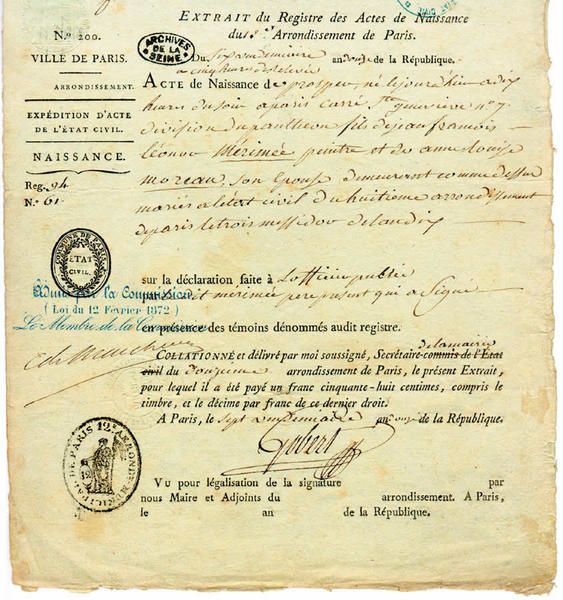 EXTRAIT du Registre des Actes de Naissance
du 12e Arrondissement de Paris.
N.º 200.
VILLE DE PARIS.
ARRONDISSEMENT.
EXPÉDITION D'ACTE
DE L'ÉTAT CIVIL.
NAISSANCE.
Reg. 94
N.º 61
ARCHIVES
DE LA
SEINE
Du Six vendemiaire an douze de la République.
a cinq heures de relevée
ACTE de Naissance de prosper, né le jour d'hier a dix
heures du soir a paris carré Ste genevieve n.º 7
division du pantheon fils de jean francois
léonor Mérimée peintre et de anne louise
moreau, son épouse demeurant comme dessus
mariés a l'etat civil du huitieme arrondissement
de paris le trois messidor de l'an dix
COMMUNE DE PARIS
ÉTAT
CIVIL
sur la déclaration faite à L'officier public
par le dit mérimée pere present qui a Signé
Admis par la Commission
(Loi du 12 Février 1872)
Le Membre de la Commission
en présence des témoins dénommés audit registre.
de la mairie
COLLATIONNÉ et délivré par moi soussigné, Secrétaire commis de l'État
civil du Douzieme arrondissement de Paris, le présent Extrait,
pour lequel il a été payé un franc cinquante-huit centimes, compris le
timbre, et le décime par franc de ce dernier droit.
A Paris, le Sept vendemiaire an douze de la République.
Gobert
PAL DE PARIS 12e ARRONDT
VU pour légalisation de la signature par
nous Maire et Adjoints du arrondissement. A Paris,
le an de la République.